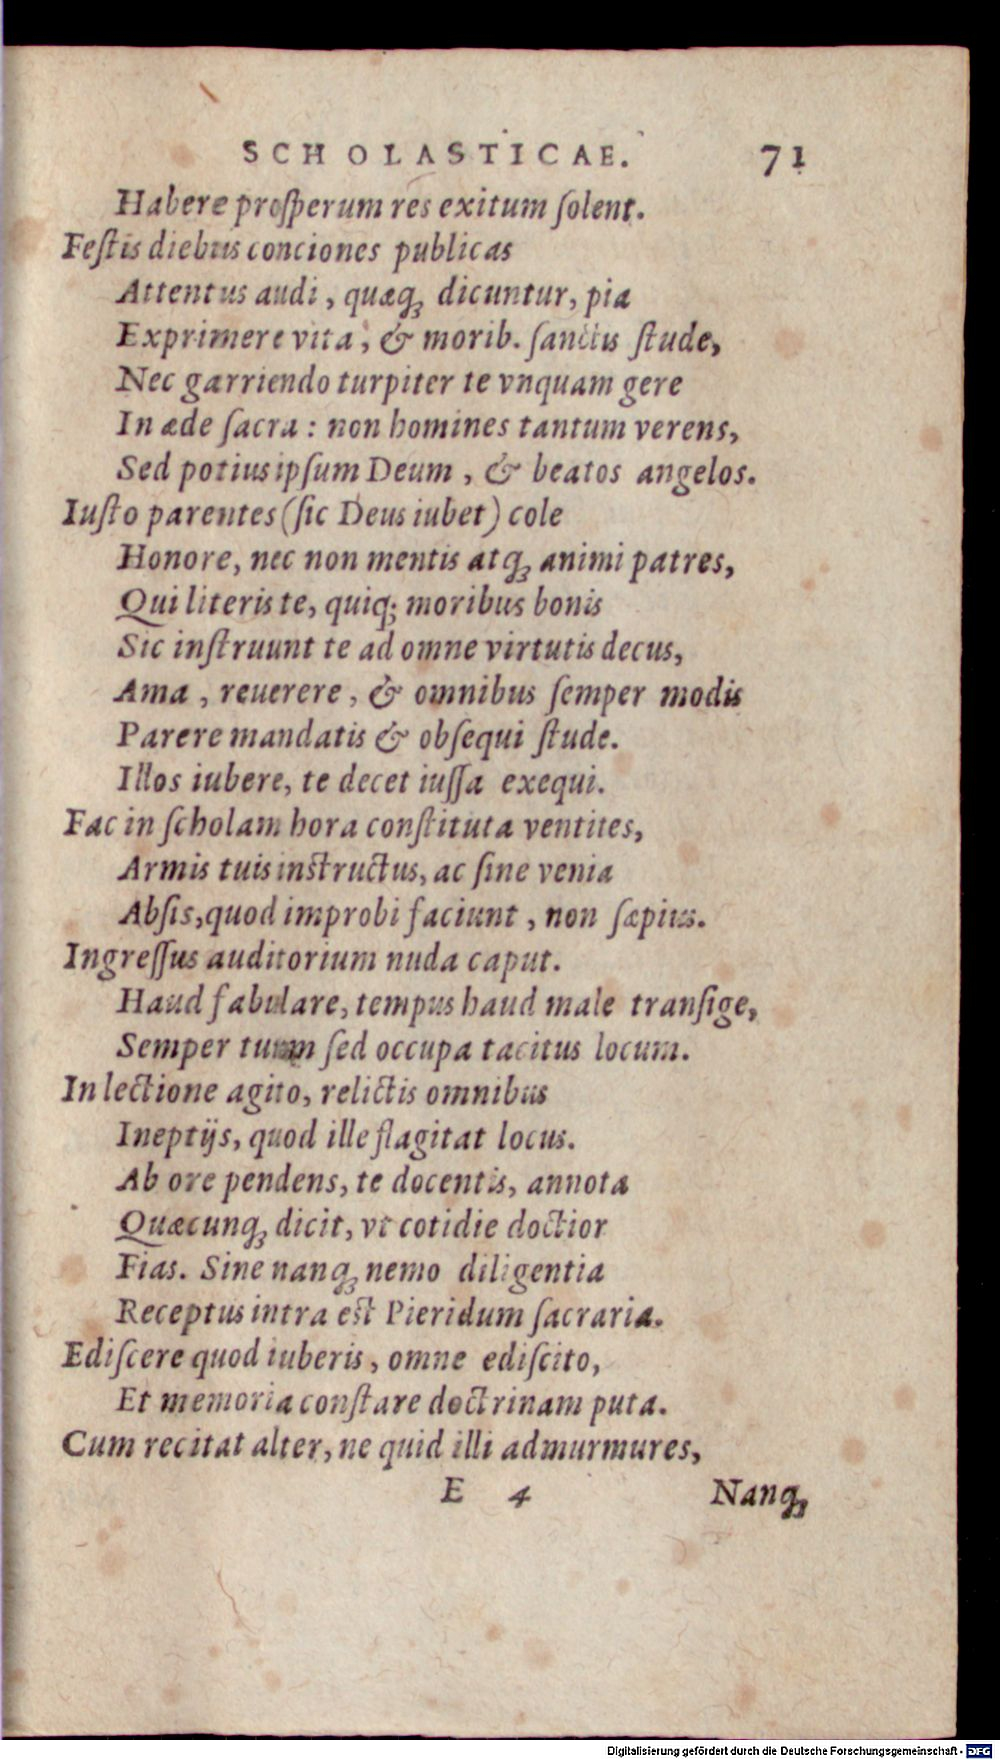 SCHOLASTICAE. 71
Habere prosperum res exitum solent.
Festis diebus conciones publicas
Attentus audi, quæq; dicuntur, pia
Exprimere vita, & morib. sanctis stude,
Nec garriendo turpiter te vnquam gere
In æde sacra: non homines tantum verens,
Sed potius ipsum Deum, & beatos angelos.
Iusto parentes (sic Deus iubet) cole
Honore, nec non mentis atq; animi patres,
Qui literis te, quiq; moribus bonis
Sic instruunt te ad omne virtutis decus,
Ama, reuerere, & omnibus semper modis
Parere mandatis & obsequi stude.
Illos iubere, te decet iussa exequi.
Fac in scholam hora constituta ventites,
Armis tuis instructus, ac sine venia
Absis, quod improbi faciunt, non sæpius.
Ingressus auditorium nuda caput.
Haud fabulare, tempus haud male transige,
Semper tuum sed occupa tacitus locum.
In lectione agito, relictis omnibus
Ineptijs, quod ille flagitat locus.
Ab ore pendens, te docentis, annota
Quæcunq; dicit, vt cotidie doctior
Fias. Sine nanq; nemo diligentia
Receptus intra est Pieridum sacraria.
Ediscere quod iuberis, omne ediscito,
Et memoria constare doctrinam puta.
Cum recitat alter, ne quid illi admurmures,
E 4 Nanq;
Digitalisierung gefördert durch die Deutsche Forschungsgemeinschaft - DFG